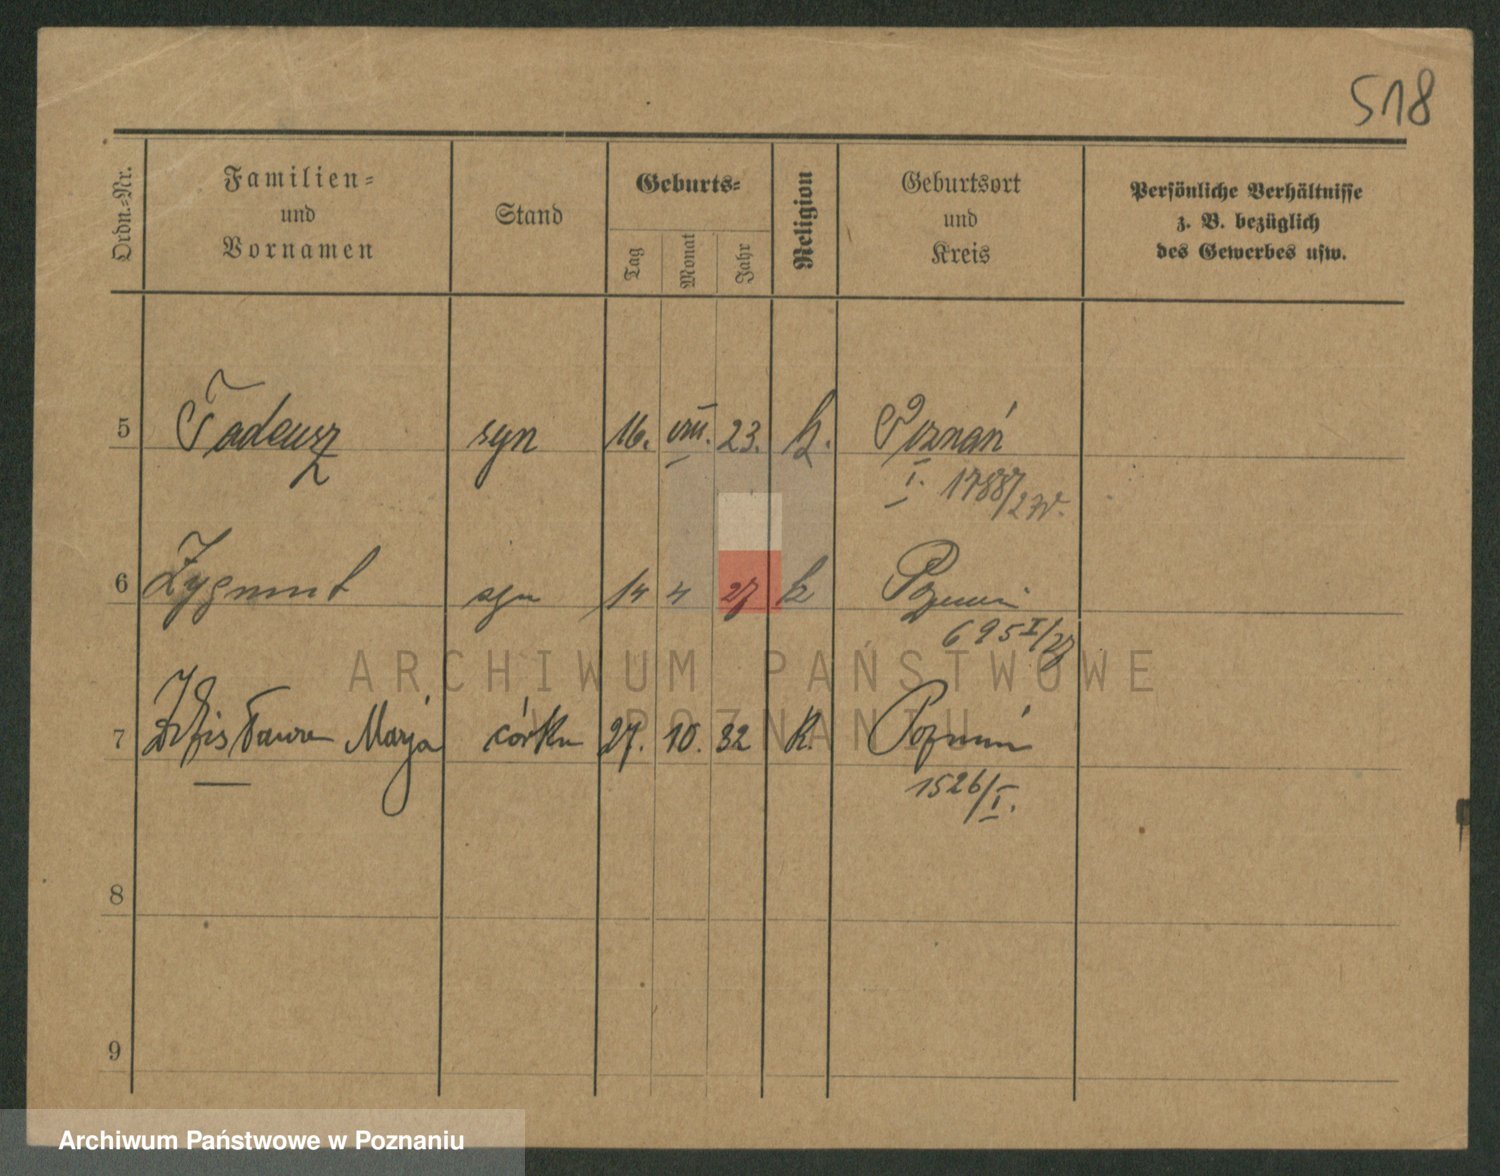 518
Ordn.-Nr.
Familien-
und
Vornamen
Stand
Geburts-
Tag
Monat
Jahr
Religion
Geburtsort
und
Kreis
Persönliche Verhältnisse
z. B. bezüglich
des Gewerbes usw.
5 Tadeusz syn 16. VIII. 23. k. Poznań
I. 1788/23
6 Zygmunt syn 14 4 27 k Poznań
695 I/27
7 Zdzisława Marja córka 27. 10. 32 k. Poznań
1526/I.
8
9
ARCHIWUM PAŃSTWOWE
W POZNANIU
Archiwum Państwowe w Poznaniu